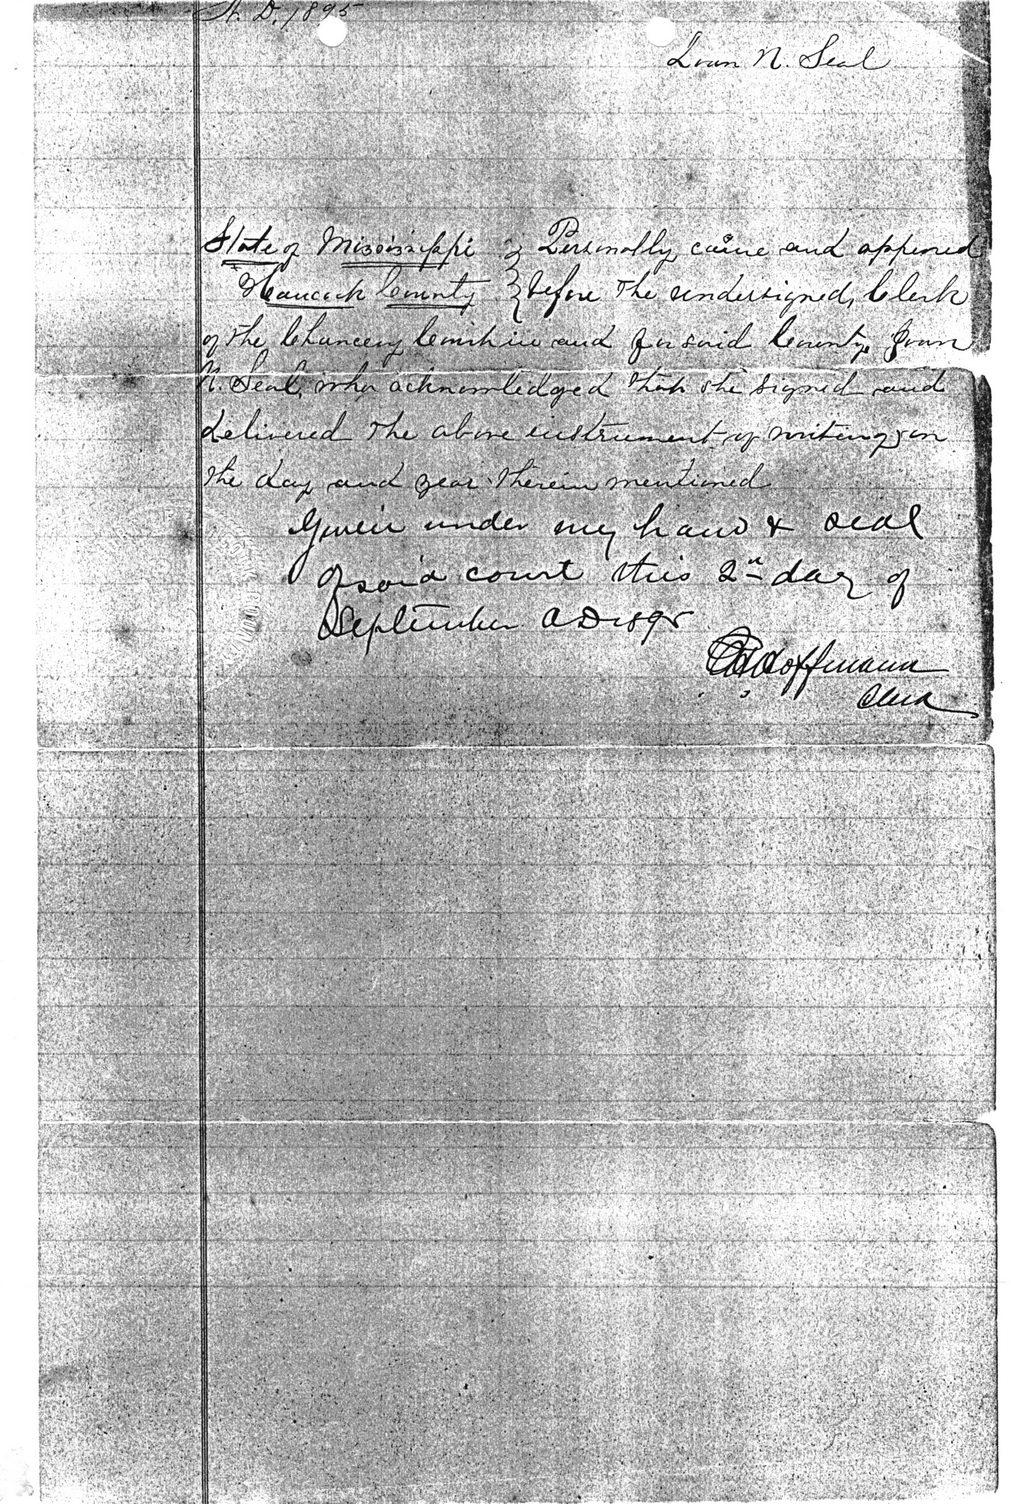 A. D. 1895
Loan N. Seal
State of Mississippi } Personally came and appeared
Hancock County } before the undersigned, Clerk
of the Chancery Court in and for said County, Loan
N. Seal, who acknowledged that she signed and
delivered the above instrument of writing on
the day and year therein mentioned
Given under my hand & seal
of said court this 2nd day of
September AD 1895
Hoffmann
Clerk